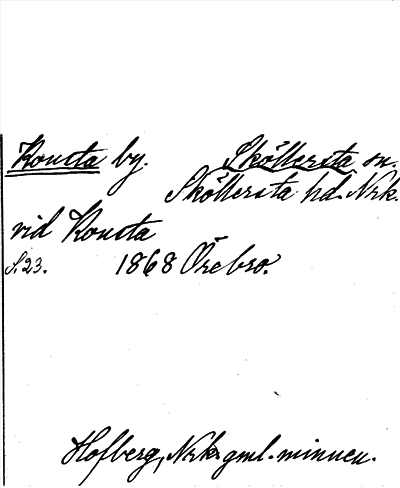 Konsta by. Sköllersta sn.
Sköllersta hd. Nrk.
vid Konsta
S. 23. 1868 Örebro.
Hofberg, Nrks gml. minnen.